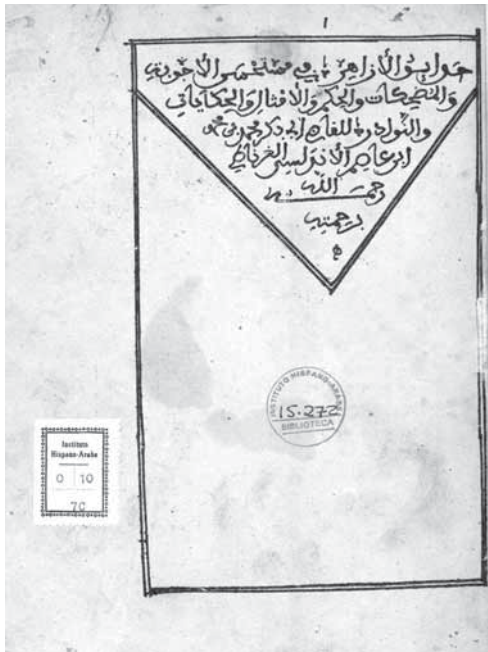 1
حدايق الأزاهر في مستحسن الأجوبة
والمضحكات والحكم والأمثال والحكايات
والنوادر أبي بكر محمد بن محمد
ابن عاصم الأندلسي الغرناطي
رحمه الله
برحمته
INSTITUTO HISPANO-ARABE
15.272
BIBLIOTECA
Instituto
Hispano-Arabe
0 10
70